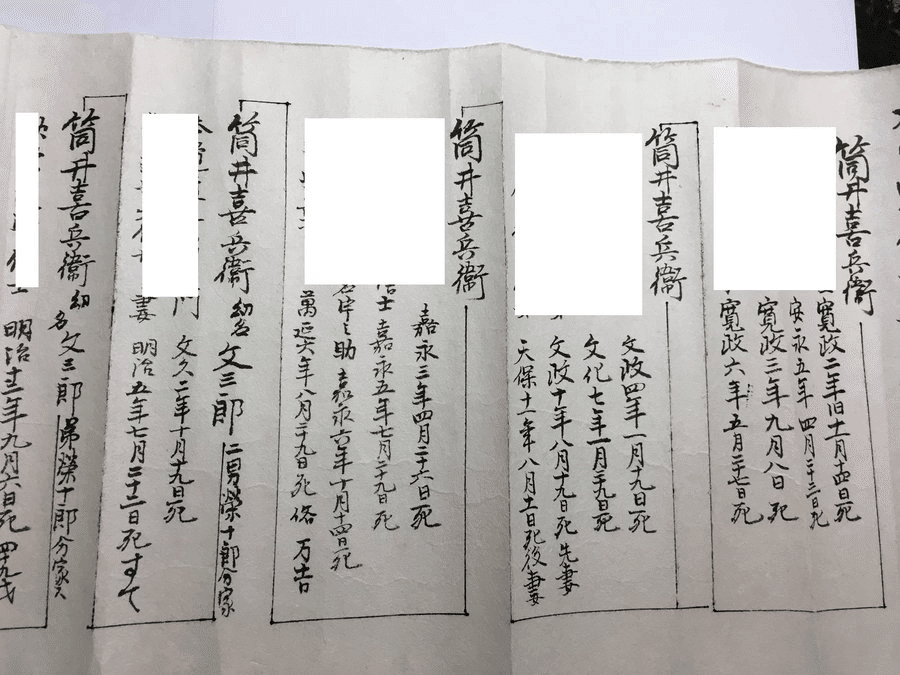 筒井喜兵衛
寛政二年旧十一月十四日死
安永五年四月二十二日死
寛政三年九月八日死
寛政六年五月二十七日死
筒井喜兵衛
文政四年一月十九日死
文化七年一月二十九日死
文政十年八月十九日死先妻
天保十一年八月十一日死後妻
筒井喜兵衛
嘉永三年四月二十六日死
信士 嘉永五年七月二十九日死
之助 嘉永六年十月十四日死
萬延元年八月二十九日死 俗 万吉
筒井喜兵衛 幼名 文三郎 二男榮十郎分家
門 文久二年十月十九日死
妻 明治五年七月二十二日死 すて
筒井喜兵衛 幼名 文三郎 弟榮十郎分家ス
明治十二年九月六日死 四十九才